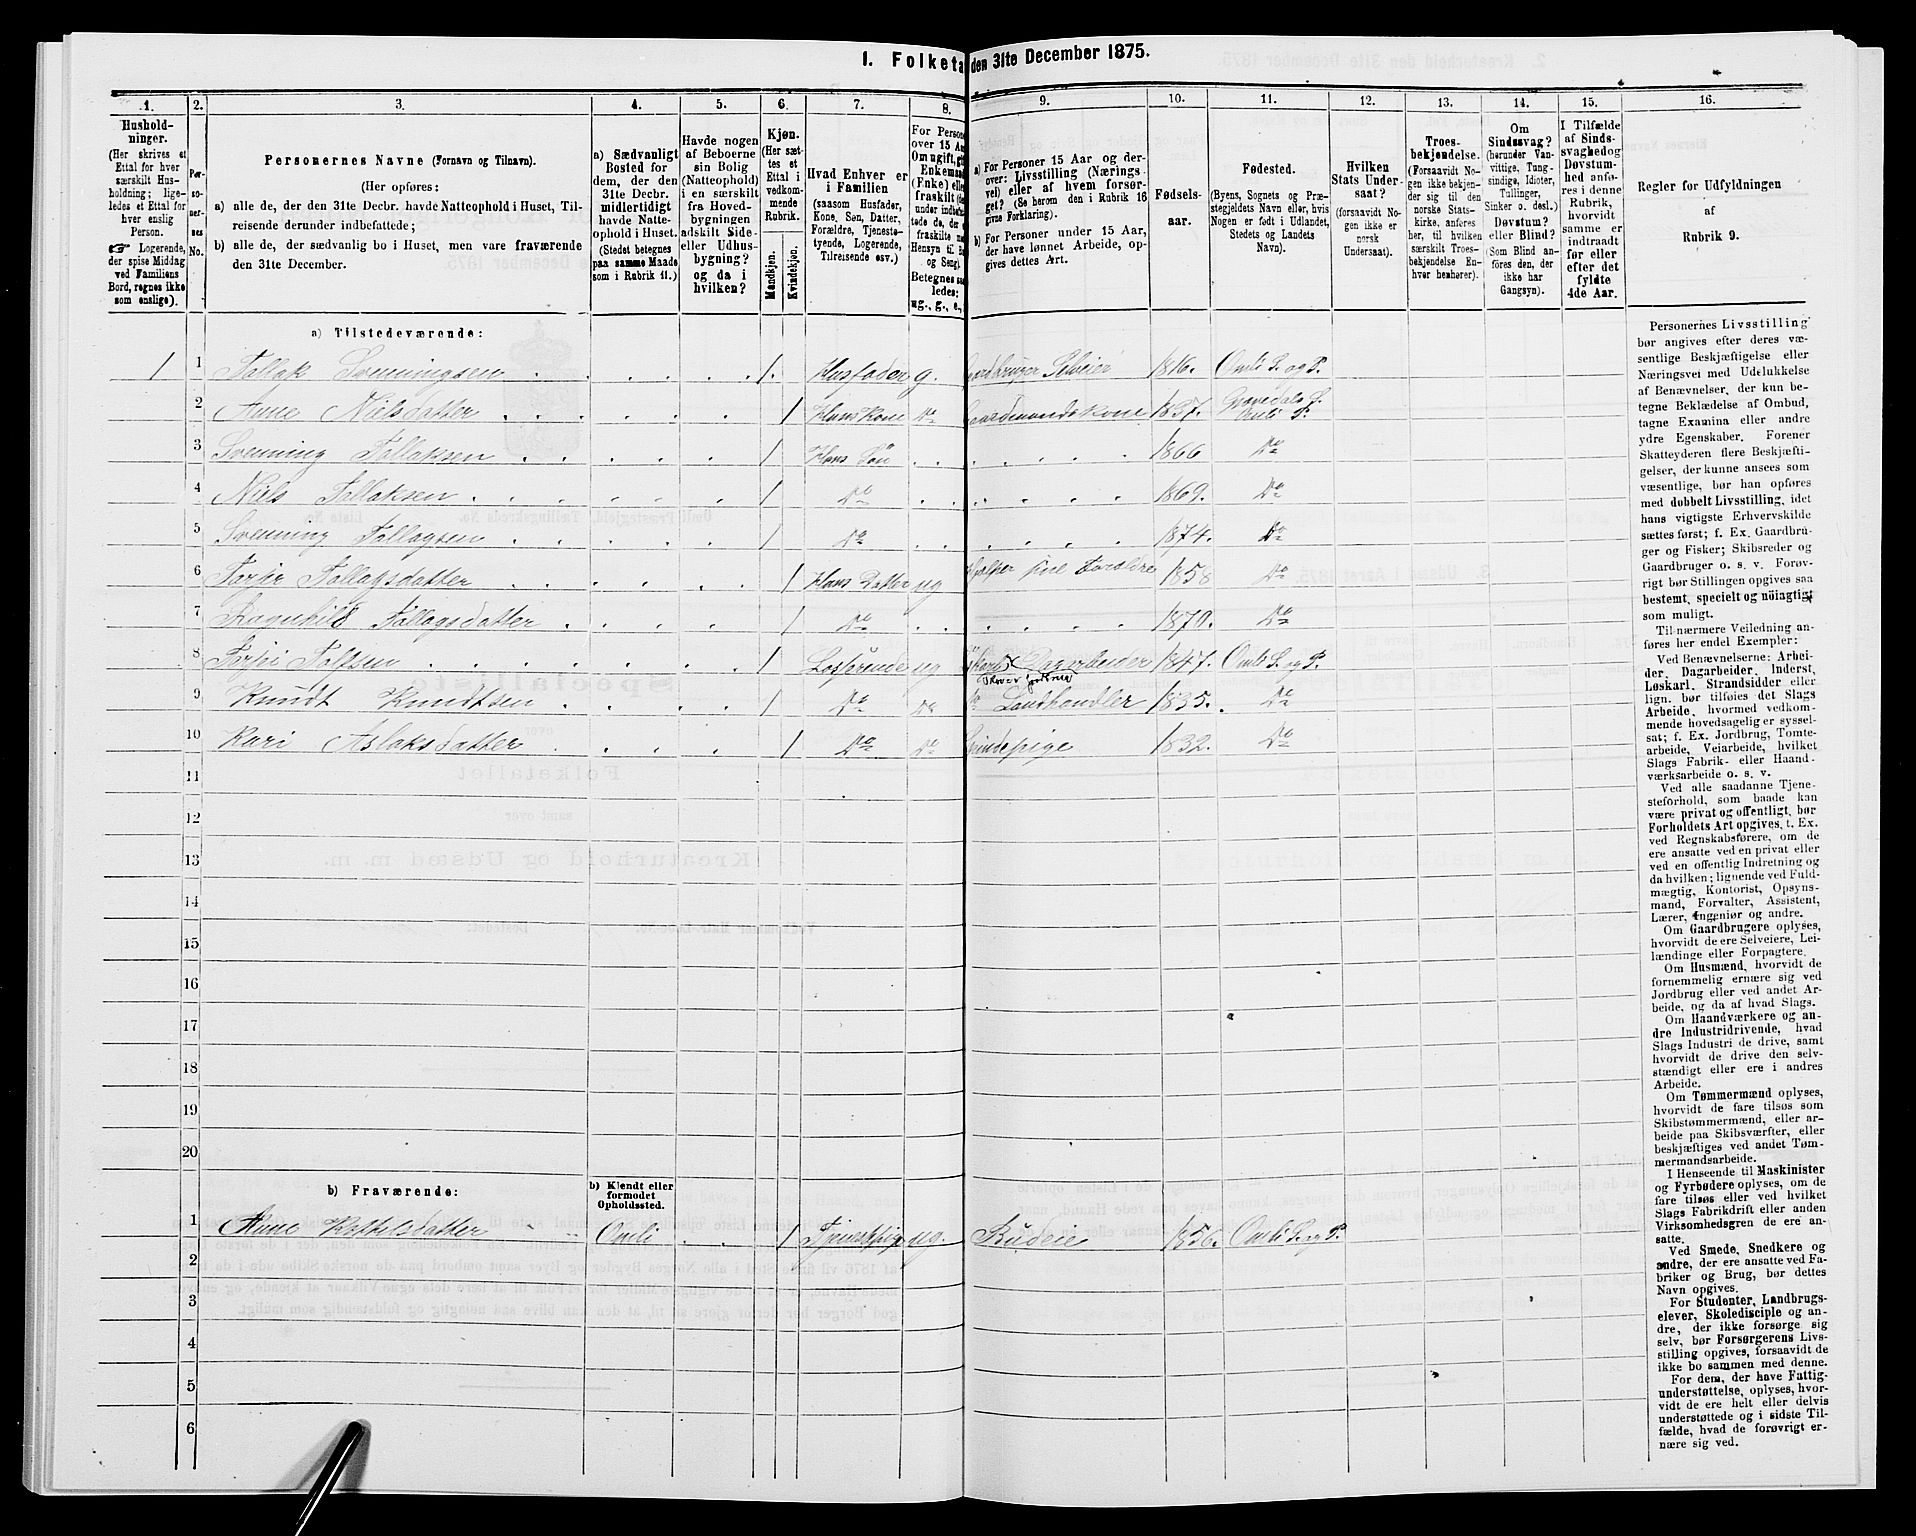 1. Folketa den 31te December 1875.
1. 2. 3. 4. 5. 6. 7. 8. 9. 10. 11. 12. 13. 14. 15. 16.
Hushold-
ninger.
(Her skrives et
Ettal for hver
særskilt Hus-
holdning; lige-
ledes et Ettal for
hver enslig
Person.
☞ Logerende,
der spise Middag
ved Familiens
Bord, regnes ikke
som enslige).
Per-
so-
ner-
nes
No.
Personernes Navne (Fornavn og Tilnavn).
(Her opføres:
a) alle de, der den 31te Decbr. havde Natteophold i Huset, Til-
reisende derunder indbefattede;
b) alle de, der sædvanlig bo i Huset, men vare fraværende
den 31te December.
a) Sædvanligt
Bosted for
dem, der den
31te Decbr.
midlertidigt
havde Natte-
ophold i Huset.
(Stedet betegnes
paa samme Maade
som i Rubrik 11.)
Havde nogen
af Beboerne
sin Bolig
(Natteophold)
i en særskilt
fra Hoved-
bygningen
adskilt Side-
eller Udhus-
bygning?
og da i
hvilken?
Kjøn.
(Her sæt-
tes et
Ettal i
vedkom-
mende
Rubrik.
Mandkjøn.
Kvindekjøn.
Hvad Enhver er
i Familien
(saasom Husfader,
Kone, Søn, Datter,
Forældre, Tjeneste-
tyende, Logerende,
Tilreisende osv.)
For Persone
over 15 Aa
Om ugift, gi
Enkemand
(Enke) elle
fraskilt (de
under indbe
tede de, der
fraskilte me
Hensyn til Bo
og Seng).
Betegnes saa
ledes:
ug., g., e.,
a) For Personer 15 Aar og der-
over: Livsstilling (Nærings-
vei) eller af hvem forsør-
get? (Se herom den i Rubrik 16
givne Forklaring).
b) For Personer under 15 Aar,
der have lønnet Arbeide, op-
gives dettes Art.
Fødsels-
aar.
Fødested.
(Byens, Sognets og Præ-
stegjeldets Navn eller, hvis
Nogen er født i Udlandet,
Stedets og Landets
Navn).
Hvilken
Stats Under-
saat?
(forsaavidt No-
gen ikke er
norsk
Undersaat).
Troes-
bekjendelse.
(Forsaavidt No-
gen ikke bekjen-
der sig til den
norske Stats-
kirke, anføres
her, til hvilken
særskilt Troes-
bekjendelse En-
hver henhører).
Om
Sindssvag?
(herunder Van-
vittige, Tung-
sindige, Idioter,
Tullinger,
Sinker o. desl.)
Døvstum?
eller Blind?
(Som Blind an-
føres den, der
ikke har
Gangsyn).
I Tilfælde
af Sinds-
svaghed og
Døvstum-
hed anfø-
res i denne
Rubrik,
hvorvidt
samme er
indtraadt
før eller
efter det
fyldte
4de Aar.
Regler for Udfyldningen
af
Rubrik 9.
a) Tilstedeværende:
1 1 Tallak Svenningsen 1. Husfader g. aardbruger Selveier 1816. Omli S. og P.
2 Anne Nielsdatter 1 Hans Kone Do aardmandskone 1837. Gjøvedals S. Omli P.
3 Svenning Tallaksen 1 Hans Søn 1866 Do
4 Niels Tallaksen 1 Do 1869. Do
5 Svenning Tallagsen 1 Do 1874. Do
6 Torjer Tallagsdatter 1 Hans Datter ug hjelper sine Forældre 1858 Do
7 Ragnhild Tallagsdatter 1 Do 1870. Do
8 Torjer 1 Losjerende ug Dagarbeider 1847. Omli S. og P.
9 Knudt Knudtsen 1 Do Do Do Landhandler 1835. Do
10 Kari Aslaksdatter 1 Do Do indepige 1832. Do
11
12
13
14
15
16
17
18
19
20
b) Fraværende:
b) Kjendt eller
formodet
Opholdssted.
1 Anne Kittelsdatter Omli 1 Tjenestpige ug. Budeie 1856. Omli S. og P.
2
3
4
5
6
Personernes Livsstilling
bør angives efter deres væ-
sentlige Beskjæftigelse eller
Næringsvei med Udelukkelse
af Benævnelser, der kun be-
tegne Beklædelse af Ombud,
tagne Examina eller andre
ydre Egenskaber. Forener
Skatteyderen flere Beskjæfti-
gelser, der kunne ansees som
væsentlige, bør han opføres
med dobbelt Livsstilling, idet
hans vigtigste Erhvervskilde
sættes først; f. Ex. Gaardbru-
ger og Fisker; Skibsreder og
Gaardbruger o. s. v. Forøv-
rigt bør Stillingen opgives saa
bestemt, specielt og nöiagtigt
som muligt.
Til nærmere Veiledning an-
føres her endel Exempler:
Ved Benævnelserne: Arbei-
der, Dagarbeider, Inderst,
Løskarl, Strandsidder eller
lign. bør tilføies det Slags
Arbeide, hvormed vedkom-
mende hovedsagelig er syssel-
sat; f. Ex. Jordbrug, Tomte-
arbeide, Veiarbeide, hvilket
Slags Fabrik- eller Haand-
værksarbeide o. s. v.
Ved alle saadanne Tjene-
steforhold, som baade kan
være privat og offentligt, bør
Forholdets Art opgives, t. Ex.
ved Regnskabsførere, om de
ere ansatte ved en privat eller
ved en offentlig Indretning og
da hvilken; lignende ved Fuld-
mægtig, Kontorist, Opsyns-
mand, Forvalter, Assistent,
Lærer, Ingeniør og andre.
Om Gaardbrugere oplyses,
hvorvidt de ere Selveiere, Lei-
lændinge eller Forpagtere.
Om Husmænd, hvorvidt de
fornemmelig ernære sig ved
Jordbrug eller ved andet Ar-
beide, og da af hvad Slags.
Om Haandværkere og an-
dre Industridrivende, hvad
Slags Industri de drive, samt
hvorvidt de drive den selv-
stændigt eller ere i andres
Arbeide.
Om Tømmermænd oplyses,
hvorvidt de fare tilsøs som
Skibstømmermænd, eller ar-
beide paa Skibsværfter, eller
beskjæftiges ved andet Tøm-
mermandsarbeide.
I Henseende til Maskinister
og Fyrbødere oplyses, om de
fare tilsøs eller ved hvilket
Slags Fabrikdrift eller anden
Virksomhedsgren de ere an-
satte.
Ved Smede, Snedkere og
andre, der ere ansatte ved Fa-
briker og Brug, bør dettes
Navn opgives.
For Studenter, Landbrugs-
elever, Skoledisciple og an-
dre, der ikke forsørge sig
selv, bør Forsørgerens Livs-
stilling opgives, forsaavidt de
ikke bo sammen med denne.
For dem, der have Fattig-
understøttelse, oplyses, hvor-
vidt de ere helt eller delvis
understøttede og i sidste Til-
fælde, hvad de forøvrigt er-
nære sig ved.